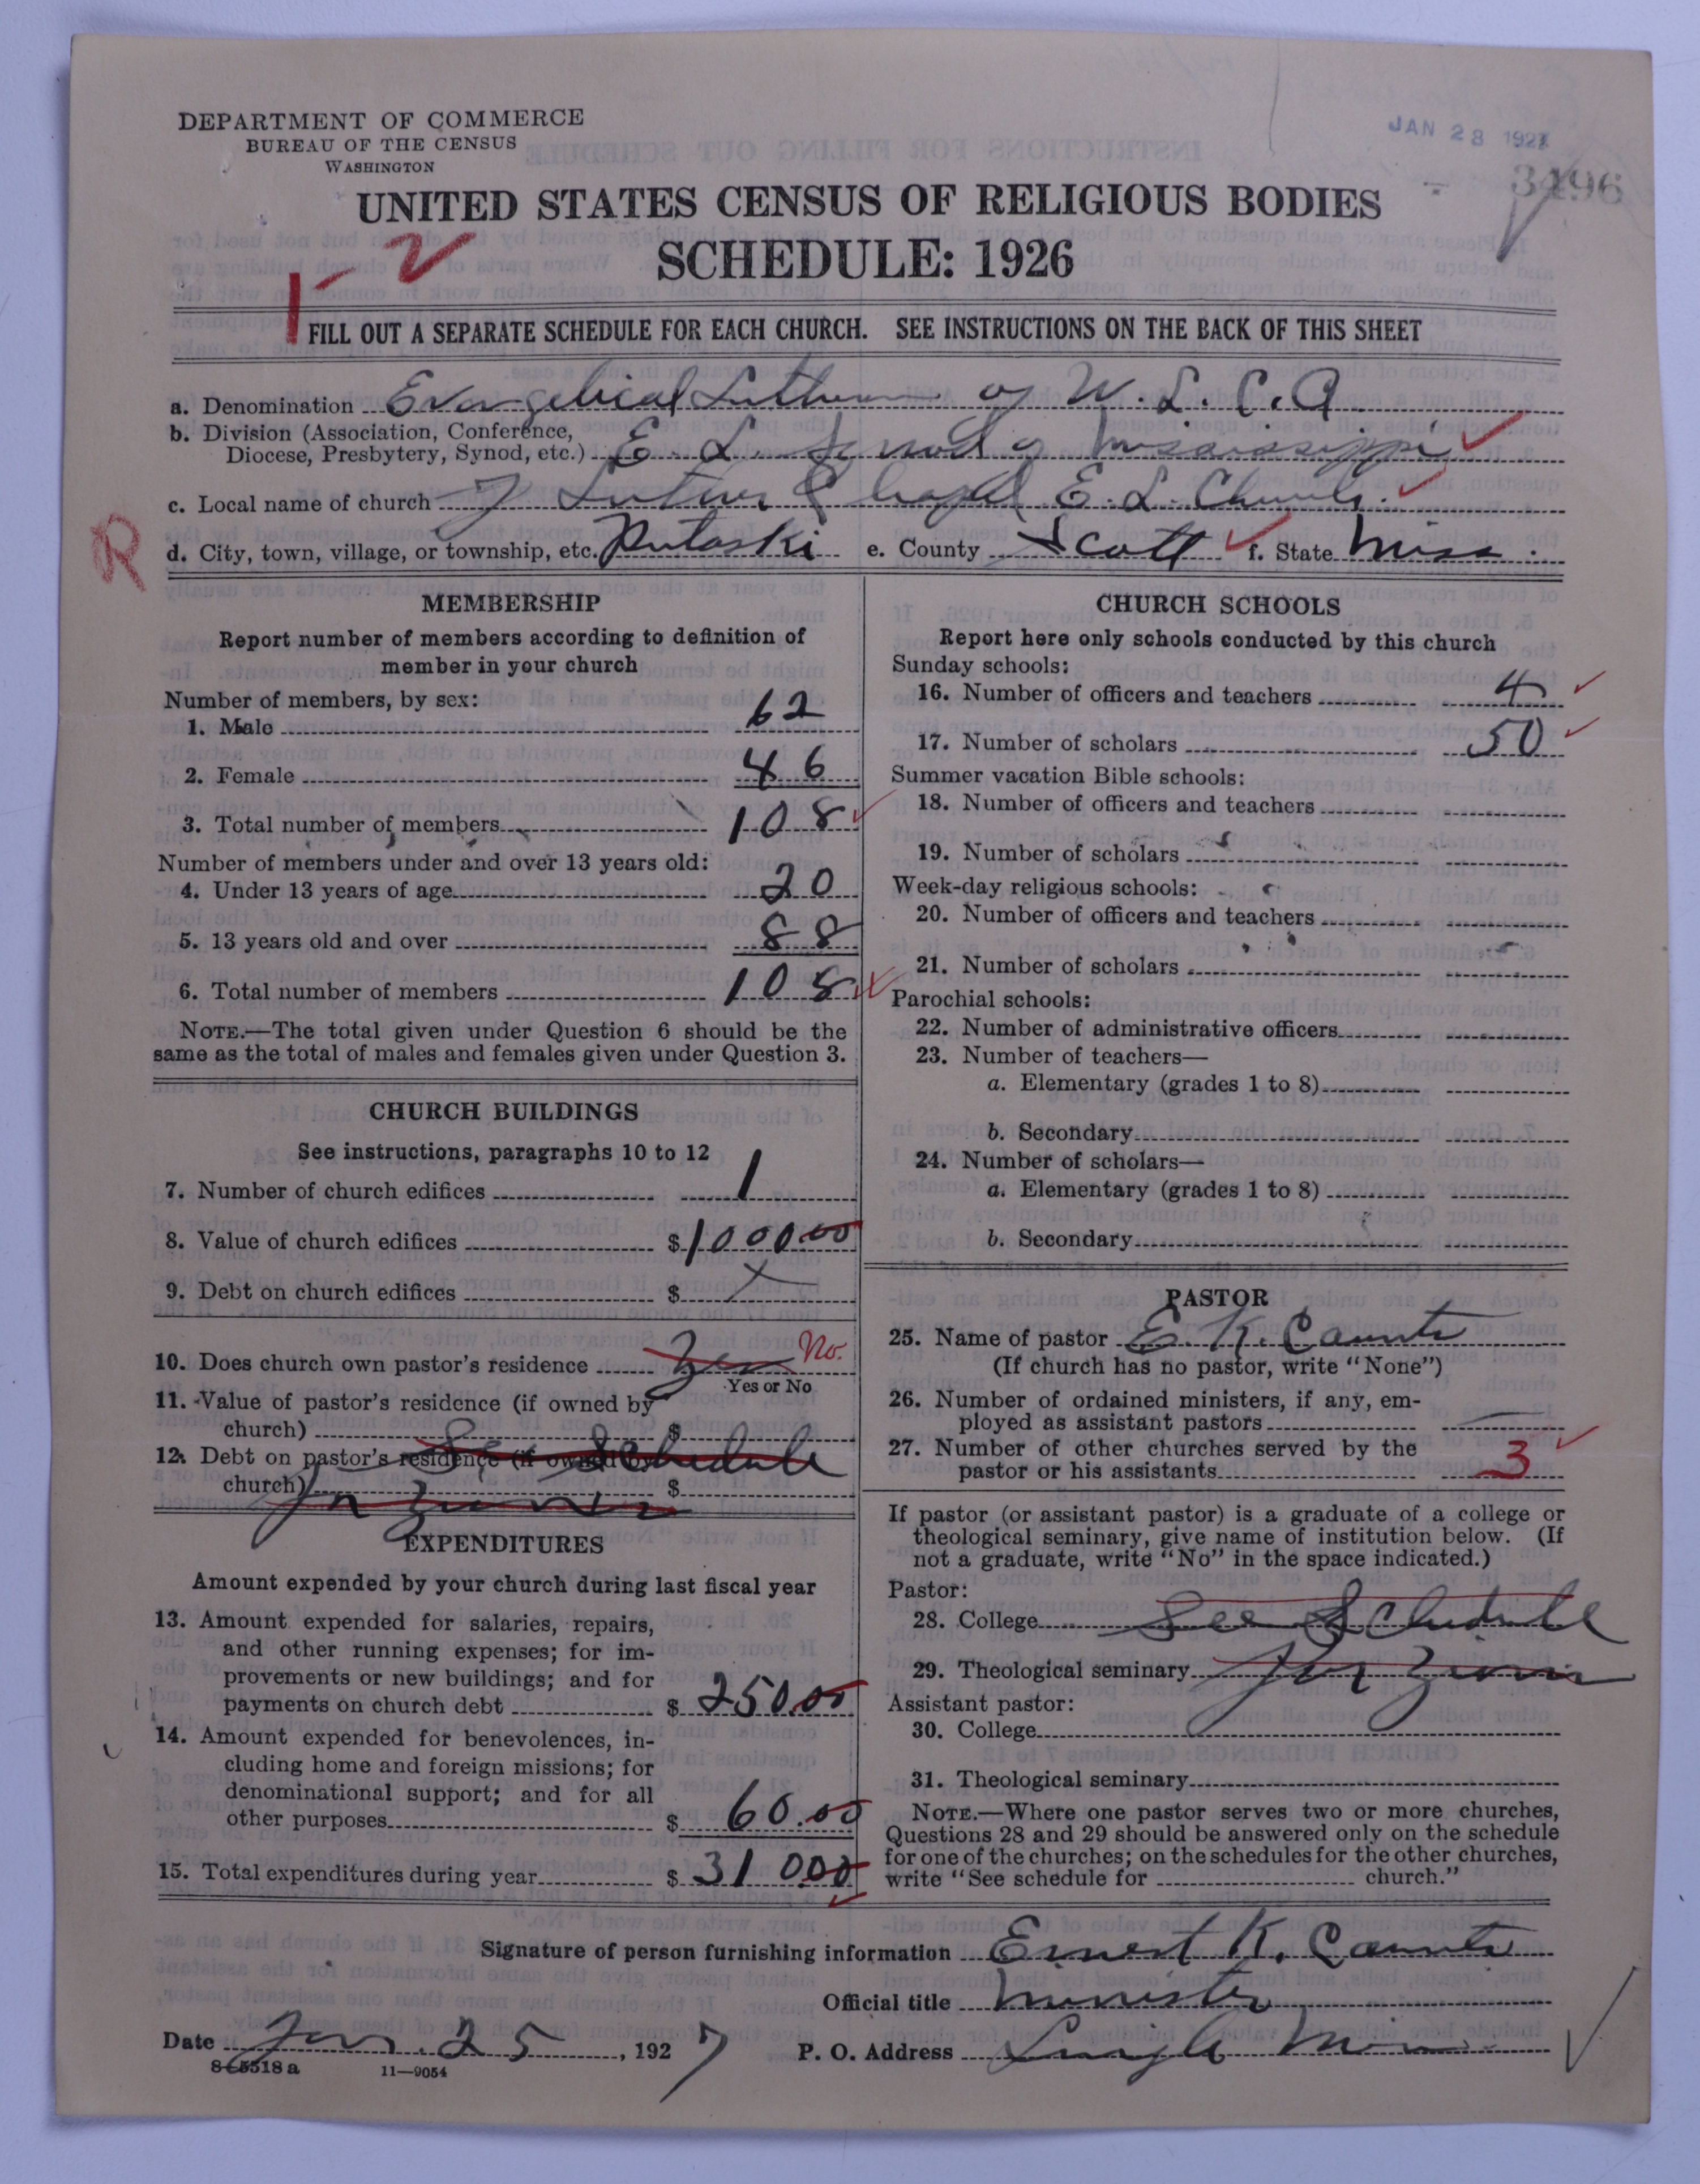 DEPARTMENT OF COMMERCE
BUREAU OF THE CENSUS
WASHINGTON
JAN 28 1927
3496
UNITED STATES CENSUS OF RELIGIOUS BODIES
SCHEDULE: 1926
FILL OUT A SEPARATE SCHEDULE FOR EACH CHURCH. SEE INSTRUCTIONS ON THE BACK OF THIS SHEET
a. Denomination Evangelical Lutheran of U. L. C. A.
b. Division (Association, Conference,
Diocese, Presbytery, Synod, etc.) E. L. Synod of Mississippi
c. Local name of church Luther Chapel E. L. Church.
R
d. City, town, village, or township, etc. Pulaski e. County Scott f. State Miss.
MEMBERSHIP
Report number of members according to definition of
member in your church
Number of members, by sex:
1. Male 62
2. Female 46
3. Total number of members 108
Number of members under and over 13 years old:
4. Under 13 years of age 20
5. 13 years old and over 88
6. Total number of members 108
NOTE.—The total given under Question 6 should be the
same as the total of males and females given under Question 3.
CHURCH BUILDINGS
See instructions, paragraphs 10 to 12
7. Number of church edifices 1
8. Value of church edifices $1000.00
9. Debt on church edifices $
10. Does church own pastor's residence Yes No.
Yes or No
11. Value of pastor's residence (if owned by
church) $
12. Debt on pastor's residence (if owned by
church) $
See Schedule
EXPENDITURES
Amount expended by your church during last fiscal year
13. Amount expended for salaries, repairs,
and other running expenses; for im-
provements or new buildings; and for
payments on church debt $ 250.00
14. Amount expended for benevolences, in-
cluding home and foreign missions; for
denominational support; and for all
other purposes $ 60.00
15. Total expenditures during year $ 310.00
CHURCH SCHOOLS
Report here only schools conducted by this church
Sunday schools:
16. Number of officers and teachers 4
17. Number of scholars 50
Summer vacation Bible schools:
18. Number of officers and teachers
19. Number of scholars
Week-day religious schools:
20. Number of officers and teachers
21. Number of scholars
Parochial schools:
22. Number of administrative officers
23. Number of teachers—
a. Elementary (grades 1 to 8)
b. Secondary
24. Number of scholars—
a. Elementary (grades 1 to 8)
b. Secondary
PASTOR
25. Name of pastor E. K. Counts
(If church has no pastor, write "None")
26. Number of ordained ministers, if any, em-
ployed as assistant pastors
27. Number of other churches served by the
pastor or his assistants 3
If pastor (or assistant pastor) is a graduate of a college or
theological seminary, give name of institution below. (If
not a graduate, write "No" in the space indicated.)
Pastor:
28. College See Schedule
29. Theological seminary for Zion
Assistant pastor:
30. College
31. Theological seminary
NOTE.—Where one pastor serves two or more churches,
Questions 28 and 29 should be answered only on the schedule
for one of the churches; on the schedules for the other churches,
write "See schedule for church."
Signature of person furnishing information Ernest K. Counts
Official title Minister
Date Jan. 25, 1927 P. O. Address
8-5518a 11—9054